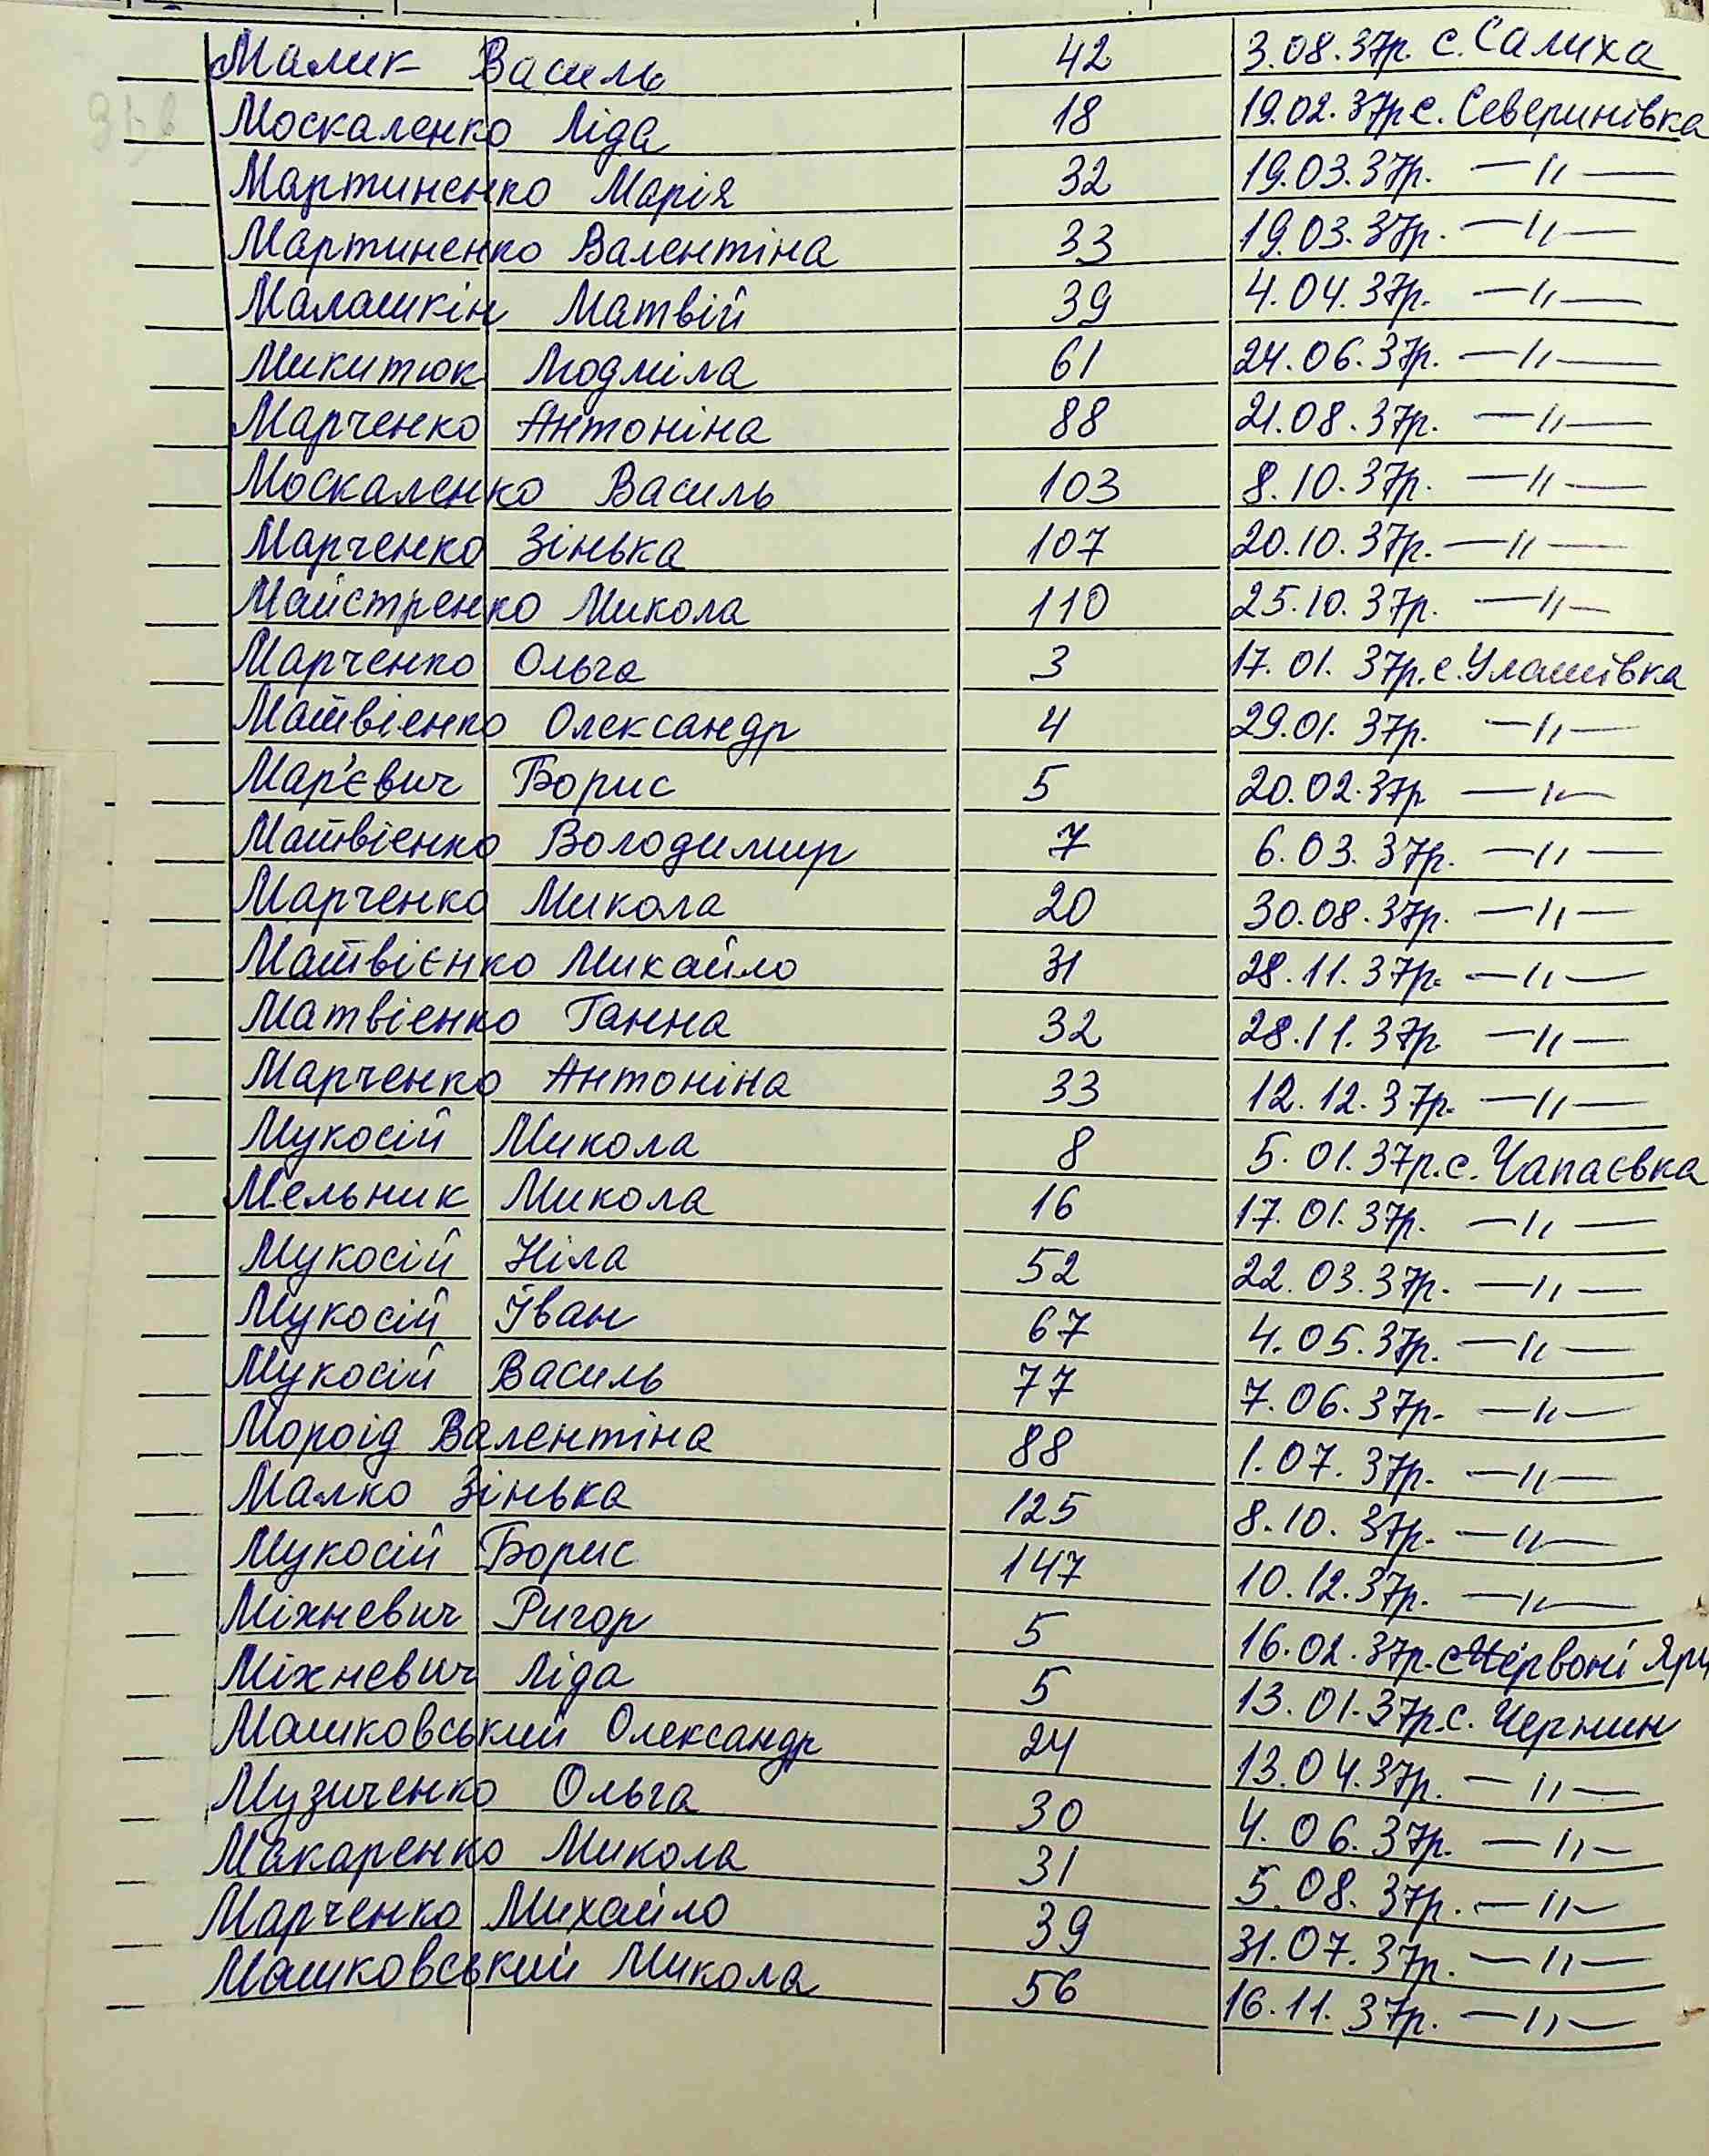 Малик Василь 42 3.08.37р. с. Салиха
Москаленко Ліда 18 19.02.37р с. Северинівка
Мартиненко Марія 32 19.03.37р. —"—
Мартиненко Валентіна 33 19.03.37р. —"—
Малашкін Матвій 39 4.04.37р. —"—
Микитюк Людміла 61 24.06.37р. —"—
Марченко Антоніна 88 21.08.37р. —"—
Москаленко Василь 103 8.10.37р. —"—
Марченко Зінька 107 20.10.37р. —"—
Майстренко Микола 110 25.10.37р. —"—
Марченко Ольга 3 17.01.37р. с. Улашівка
Матвієнко Олександр 4 29.01.37р. —"—
Мар'євич Борис 5 20.02.37р —"—
Матвієнко Володимир 7 6.03.37р. —"—
Марченко Микола 20 30.08.37р. —"—
Матвієнко Михайло 31 28.11.37р. —"—
Матвієнко Ганна 32 28.11.37р —"—
Марченко Антоніна 33 12.12.37р. —"—
Мукосій Микола 8 5.01.37р. с. Чапаєвка
Мельник Микола 16 17.01.37р. —"—
Мукосій Ніла 52 22.03.37р. —"—
Мукосій Іван 67 4.05.37р. —"—
Мукосій Василь 77 7.06.37р. —"—
Мороід Валентіна 88 1.07.37р. —"—
Малко Зінька 125 8.10.37р. —"—
Мукосій Борис 147 10.12.37р. —"—
Міхневич Ригор 5 16.02.37р. с Червоні Яри
Міхневич Ліда 5 13.01.37р. с. Чернин
Машковський Олександр 24 13.04.37р. —"—
Музиченко Ольга 30 4.06.37р. —"—
Макаренко Микола 31 5.08.37р. —"—
Марченко Михайло 39 31.07.37р. —"—
Машковський Микола 56 16.11.37р. —"—